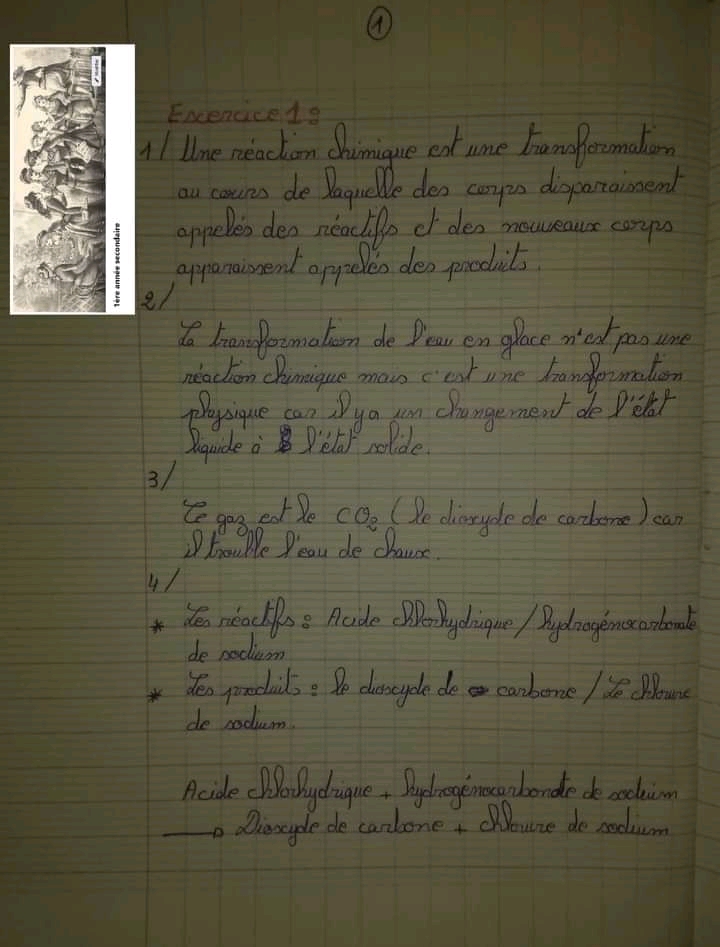 1
Exercice 1:
1/ Une réaction chimique est une transformation
au cours de laquelle des corps disparaissent
appelés des réactifs et des nouveaux corps
apparaissent appelés des produits.
2/
La transformation de l'eau en glace n'est pas une
réaction chimique mais c'est une transformation
physique car il y a un changement de l'état
liquide à l'état solide.
3/
Le gaz est le CO2 (le dioxyde de carbone) car
il trouble l'eau de chaux.
4/
* Les réactifs : Acide chlorhydrique / hydrogénocarbonate
de sodium
* Les produits : le dioxyde de carbone / Le chlorure
de sodium.
Acide chlorhydrique + hydrogénocarbonate de sodium
→ Dioxyde de carbone + chlorure de sodium
1ère année secondaire